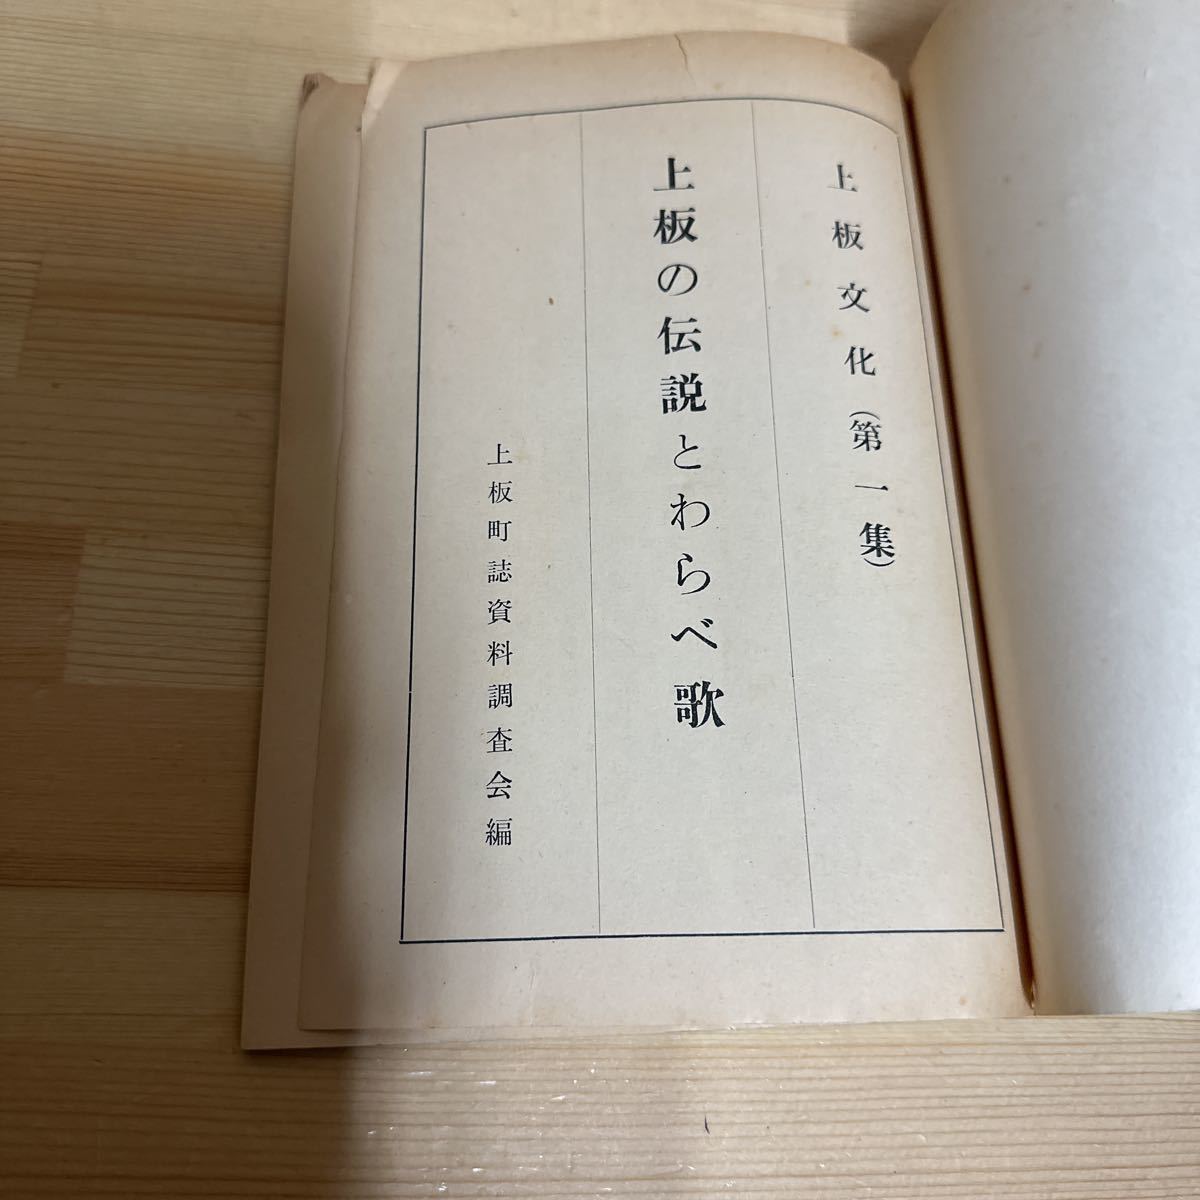 上板文化(第一集)
上板の伝説とわらべ歌
上板町誌資料調査会編